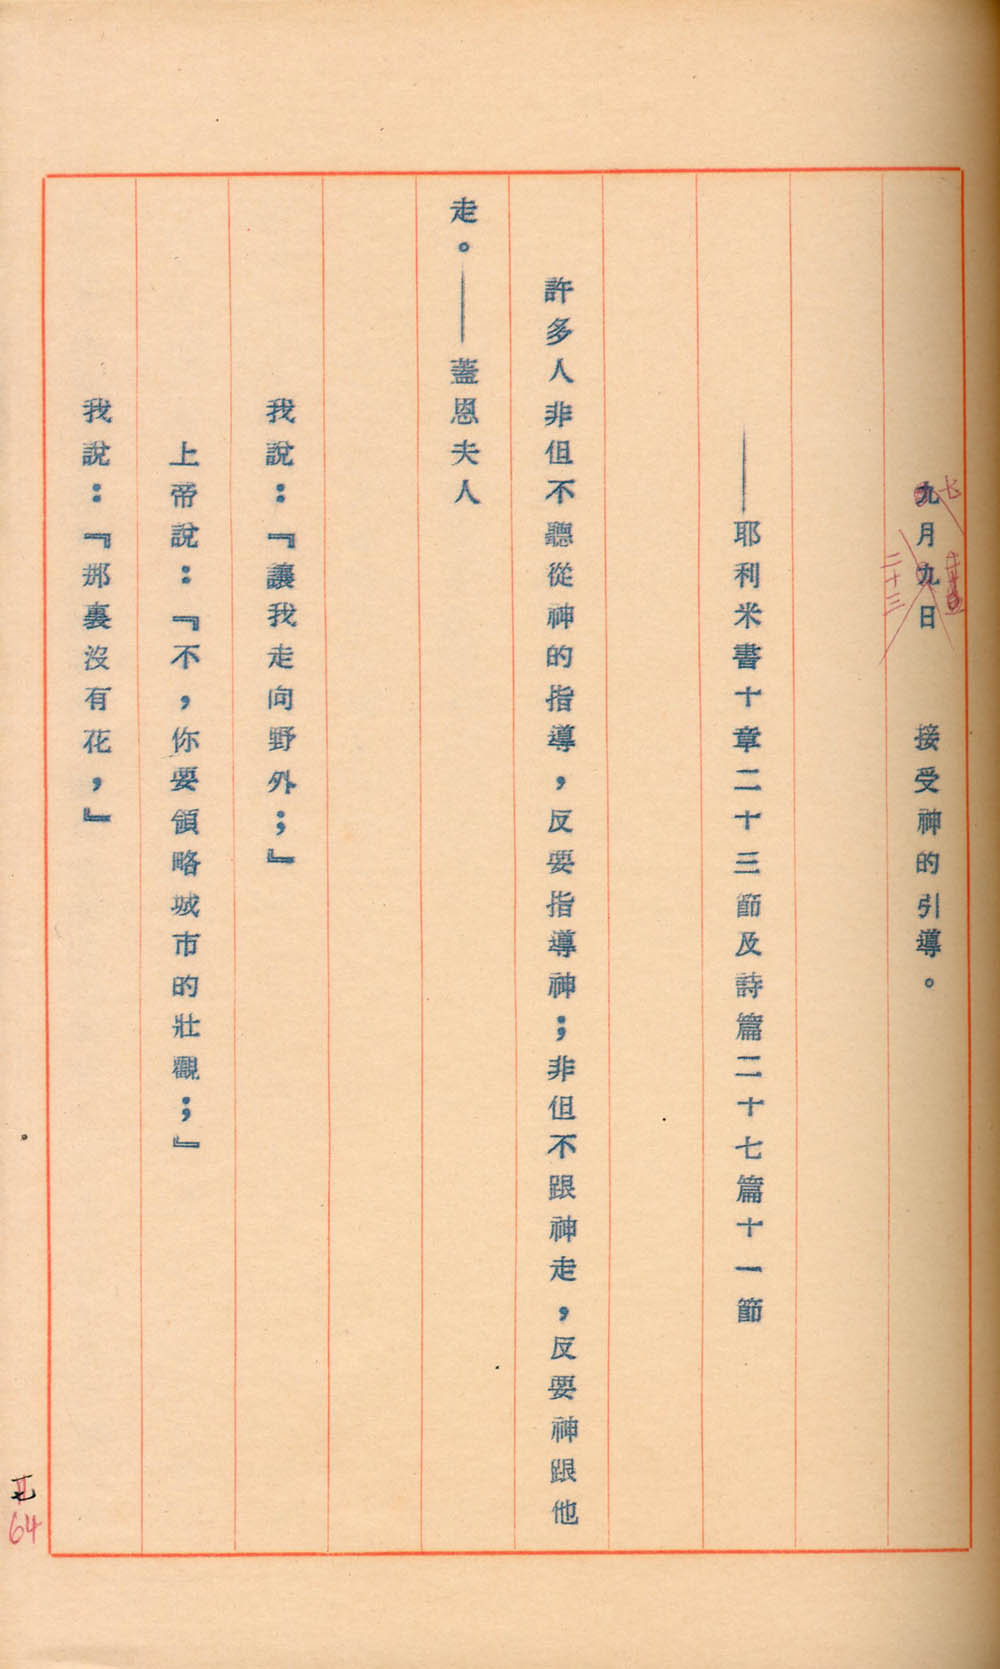 九月九日　接受神的引導。
七
二十三
——耶利米書十章二十三節及詩篇二十七篇十一節
許多人非但不聽從神的指導，反要指導神；非但不跟神走，反要神跟他
走。——蓋恩夫人
我說：『讓我走向野外；』
上帝說：『不，你要領略城市的壯觀；』
我說：『那裏沒有花，』
64